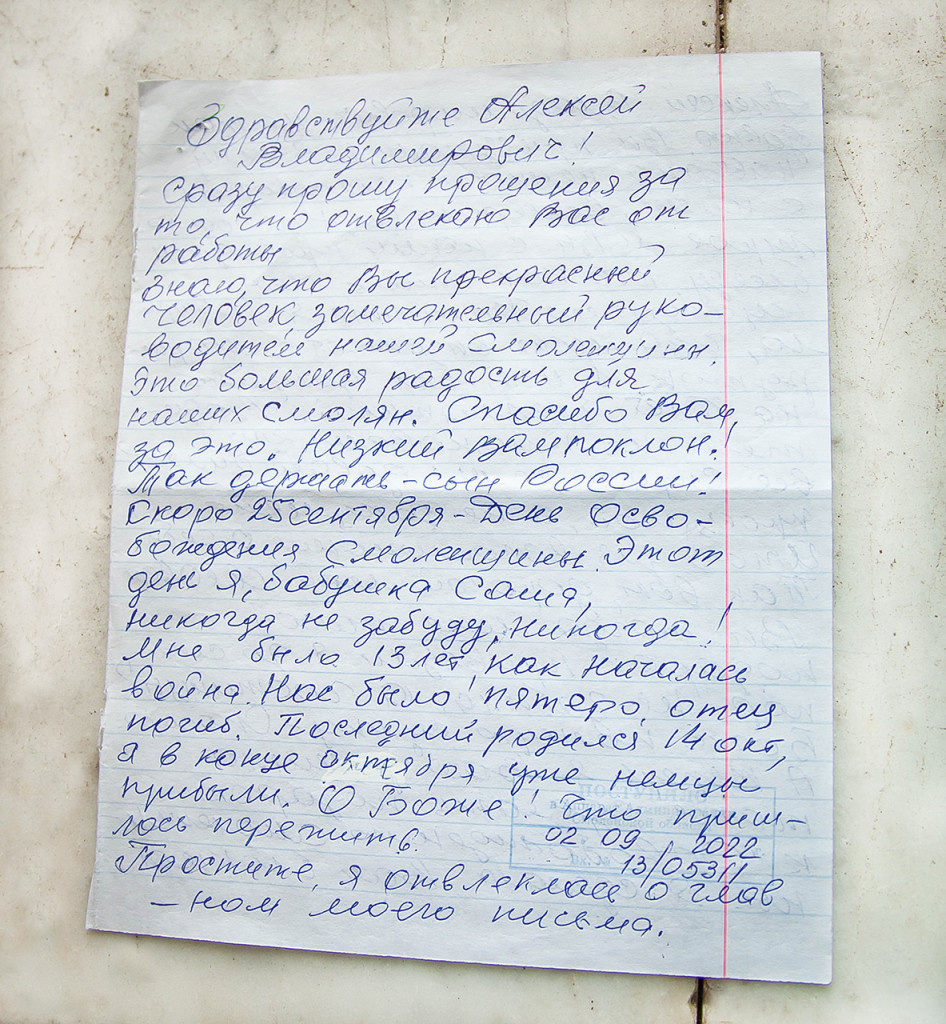 Здравствуйте Алексей
Владимирович!
Сразу прошу прощения за
то, что отвлекаю Вас от
работы
Знаю, что Вы прекрасный
человек, замечательный руко-
водитель нашей Смоленщины.
Это большая радость для
наших Смолян. Спасибо Вам,
за это. Низкий Вам поклон!
Так держать - сын России!
Скоро 25 сентября - День Осво-
бождения Смоленщины. Этот
день я, бабушка Саша,
никогда не забуду, никогда!
Мне было 13 лет, как началась
война. Нас было пятеро, отец
погиб. Последний родился 14 окт,
а в конце октября уже немцы
прибыли. О Боже! Что приш-
лось пережить.
02 09 2022
13/05311
Простите, я отвлеклась о глав
-ном моего письма.